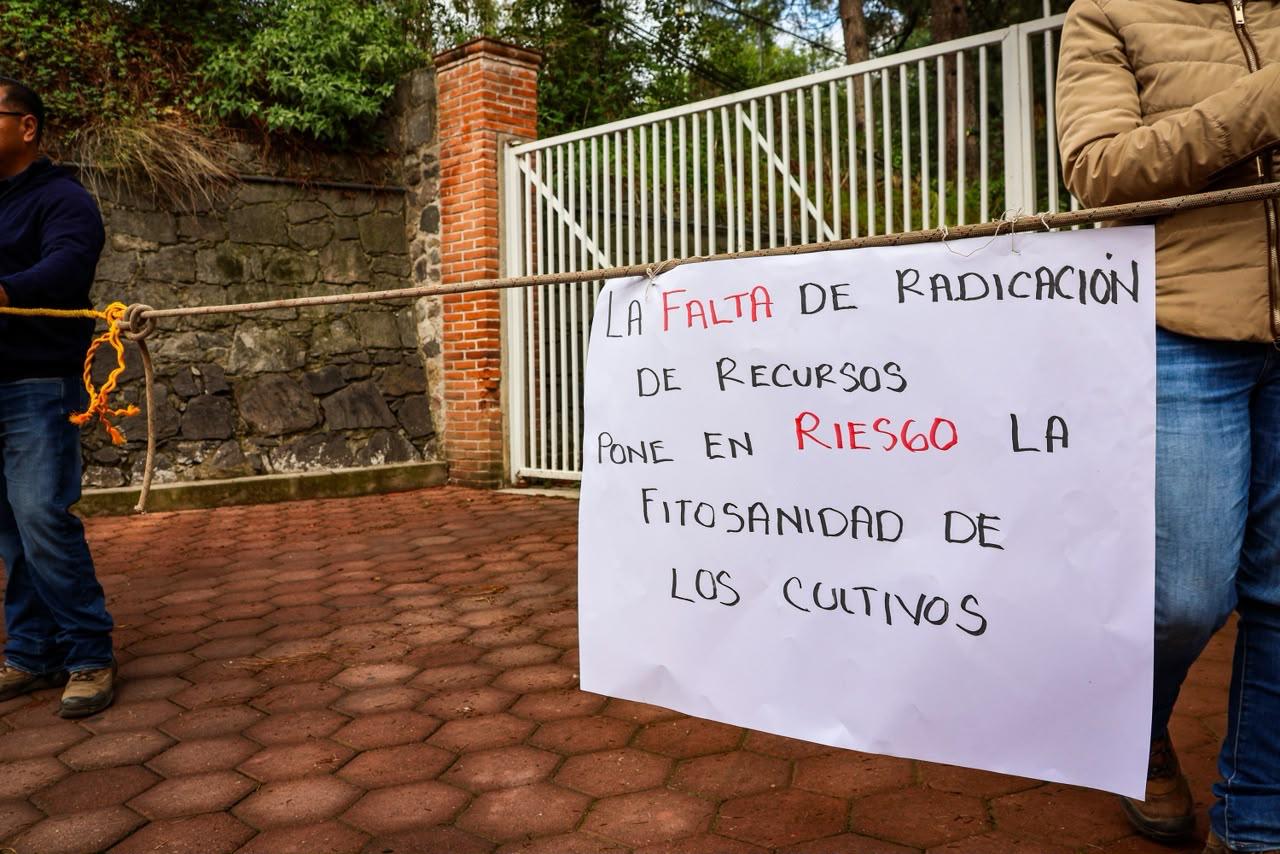 LA FALTA DE RADICACIÓN
DE RECURSOS
PONE EN RIESGO LA
FITOSANIDAD DE
LOS CULTIVOS